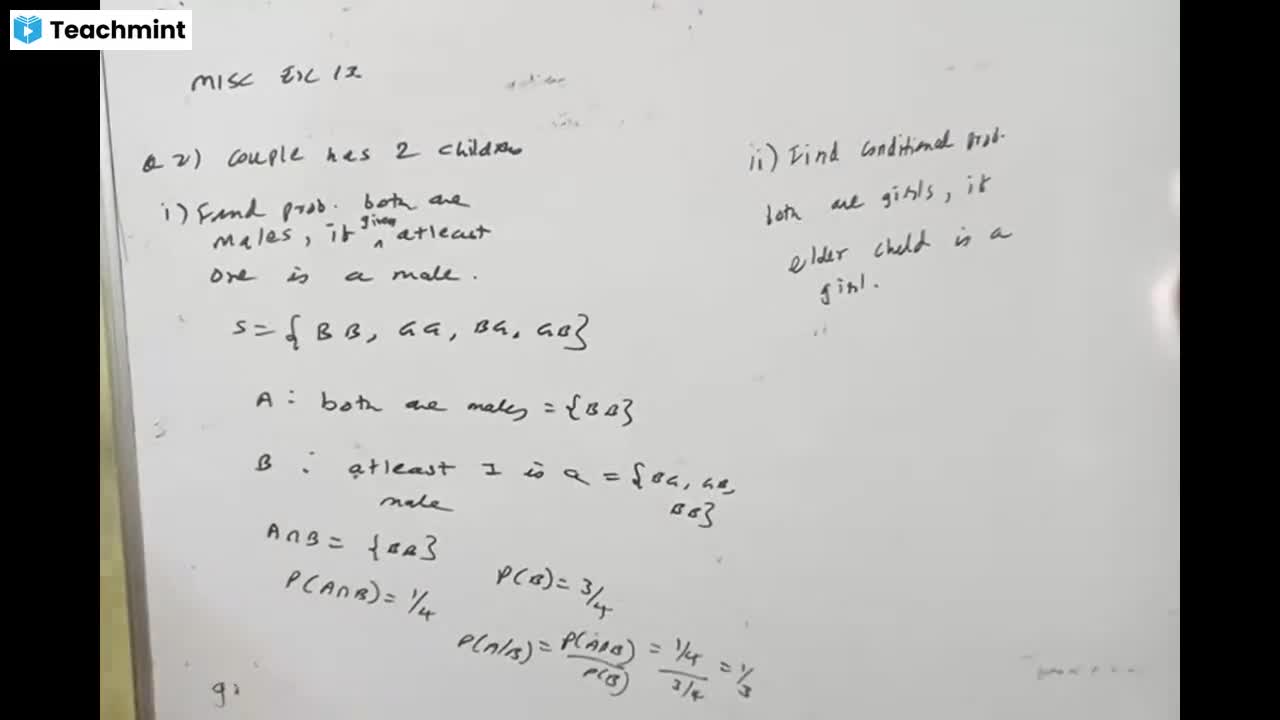 Teachmint
MISC EX 12
Q 2) Couple has 2 children
i) Find prob. both are
males, if given atleast
one is a male.
S = {BB, GG, BG, GB}
A : both are males = {BB}
B : atleast 1 is a = {BG, GB,
male BB}
A∩B = {BB}
P(A∩B) = 1/4
P(B) = 3/4
P(A/B) = P(A∩B)/P(B) = 1/4 / 3/4 = 1/3
ii) Find conditional prob.
both are girls, if
elder child is a
girl.